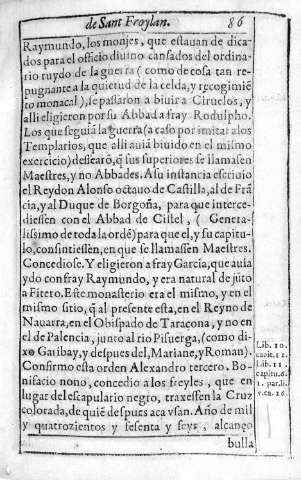 de Sant Froylan. 86
Raymundo, los monjes, que estauan de dica-
dos para el officio diuino cansados del ordina-
rio ruydo de la guerra (como de cosa tan re-
pugnante a la quietud de la celda, y recogimiẽ
to monacal), se passaron a biuir a Ciruelos, y
alli eligieron por su Abbad a fray Rodulpho.
Los que seguiã la guerra (a caso por imitar a los
Templarios, que alli auiã biuido en el mismo
exercicio) dessearõ, q̃ sus superiores se llamasen
Maestres, y no Abbades. A su instancia escriuio
el Rey don Alonso octauo de Castilla, al de Frã
cia, y al Duque de Borgoña, para que interce-
diessen con el Abbad de Cistel, (Genera-
lissimo de toda la ordẽ) para que el, y su capitu-
lo, consintiessen, en que se llamassen Maestres.
Concediose. Y eligieron a fray Garcia, que auia
ydo con fray Raymundo, y era natural de jũto
a Fitero. Este monasterio era el mismo, y en el
mismo sitio, q̃ al presente esta, en el Reyno de
Nauarra, en el Obispado de Taracona, y no en
el de Palencia, junto al rio Pisuerga, (como di-
xo Garibay, y despues del, Mariane, y Roman).
Confirmo esta orden Alexandro tercero. Bo-
nifacio nono, concedio a los freyles, que en
lugar del escapulario negro, traxessen la Cruz
colorada, de quiẽ despues aca vsan. Año de mil
y quatrozientos y sesenta y seys, alcanço
bulla
Lib. 10.
capit. 12.
Lib. 11.
capitu. 6.
1. par. li.
v. ca. 26.